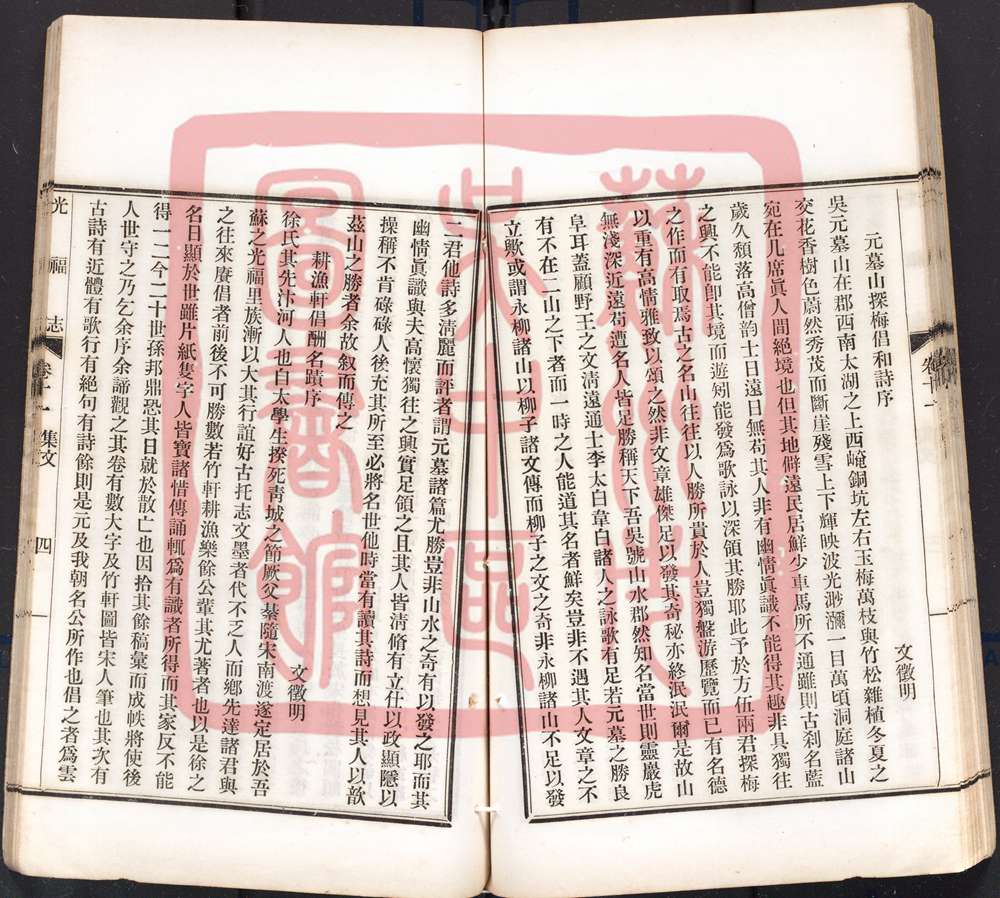 元墓山探梅倡和詩序
文徵明
吳元墓山在郡西南太湖之上西崦銅坑左右玉梅萬枝與竹松雜植冬夏之
交花香樹色蔚然秀茂而斷崖殘雪上下輝映波光渺瀰一目萬頃洞庭諸山
宛在几席眞人間絕境也但其地僻遠民居鮮少車馬所不通雖則古刹名藍
歲久頹落高僧韻士日遠日無苟其人非有幽情眞識不能得其趣非具獨往
之興不能卽其境而遊矧能發爲歌詠以深領其勝耶此予於方伍兩君探梅
之作而有取焉古之名山往往以人勝所貴於人豈獨盤游歷覽而已有名德
以重有高情雅致以頌之然非文章雄傑足以發其奇秘亦終泯泯爾是故山
無淺深近遠苟遭名人皆足勝稱天下吾吳號山水郡然知名當世則靈巖虎
阜耳蓋顧野王之文淸遠通士李太白韋白諸人之詠歌有足若元墓之勝良
有不在二山之下者而一時之人能道其名者鮮矣豈非不遇其人文章之不
立歟或謂永柳諸山以柳子諸文傳而柳子之文之奇非永柳諸山不足以發
二君他詩多淸麗而評者謂元墓諸篇尤勝豈非山水之奇有以發之耶而其
幽情眞識與夫高懷獨往之興實足領之且其人皆淸脩有立仕以政顯隱以
操稱不肯碌碌人後充其所至必將名世他時當有讀其詩而想見其人以歆
茲山之勝者余故叙而傳之
耕漁軒倡酬名蹟序
文徵明
徐氏其先汴河人也自太學生揆死靑城之節厥父綦隨宋南渡遂定居於吾
蘇之光福里族漸以大其行誼好古托志文墨者代不乏人而鄕先達諸君與
之往來賡倡者前後不可勝數若竹軒耕漁樂餘公輩其尤著者也以是徐之
名日顯於世雖片紙隻字人皆寶諸惜傳誦輒爲有識者所得而其家反不能
得一二今二十世孫邦鼎恐其日就於散亡也因拾其餘稿彙而成帙將使後
人世守之乃乞余序余諦觀之其卷有數大字及竹軒圖皆宋人筆也其次有
古詩有近體有歌行有絕句有詩餘則是元及我朝名公所作也倡之者爲雲
光福志
卷十二 集文 四
蘇州市
吳中區
圖書館